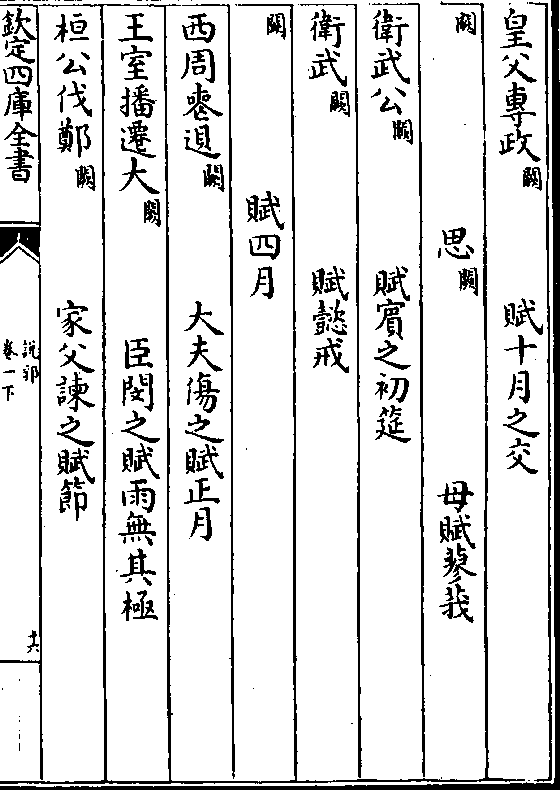 皇父專政闕 賦十月之交
闕 思闕 母賦蓼莪
衛武公闕 賦賓之初筵
衛武闕 賦懿戒
闕 賦四月
西周喪𨓤闕 大夫傷之賦正月
王室播遷大闕 臣閔之賦雨無其極
桓公伐鄭闕 家父諫之賦節
欽定四庫全書
說郛
卷一下
十六